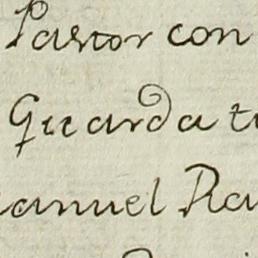 Pastor con
Guarda tu
anuel Ra